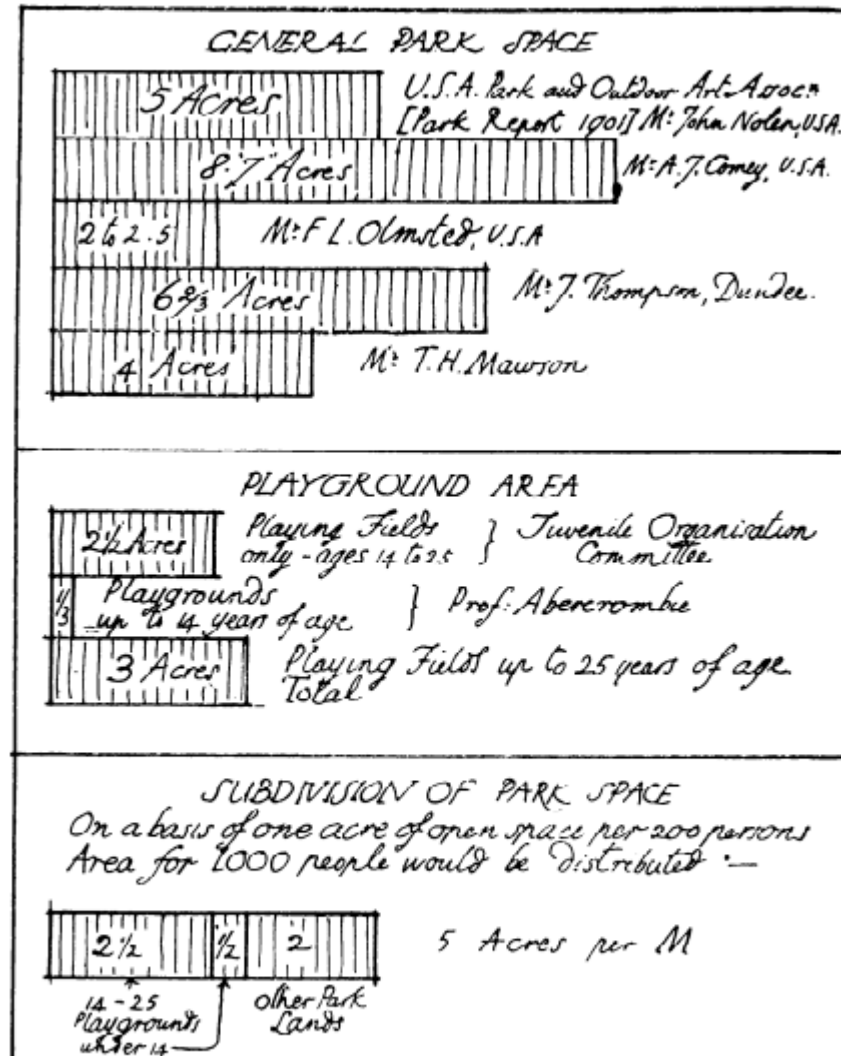 GENERAL PARK SPACE
5 Acres
U.S.A. Park and Outdoor Art Assocn
[Park Report 1901] Mr John Nolen, USA.
8.7 Acres
Mr A.J. Comey, U.S.A.
2 to 2.5
Mr F L. Olmsted, U.S.A
6 2/3 Acres
Mr J. Thompson, Dundee.
4 Acres
Mr T.H. Mawson
PLAYGROUND AREA
2 1/2 Acres
Playing Fields
only - ages 14 to 25
} Juvenile Organisation
Committee
1/3
Playgrounds
up to 14 years of age
} Prof: Abercrombie
3 Acres
Playing Fields up to 25 years of age
Total
SUBDIVISION OF PARK SPACE
On a basis of one acre of open space per 200 persons
Area for 1000 people would be distributed :—
2 1/2
1/2
2
5 Acres per M
14 - 25
Playgrounds
under 14
Other Park
Lands